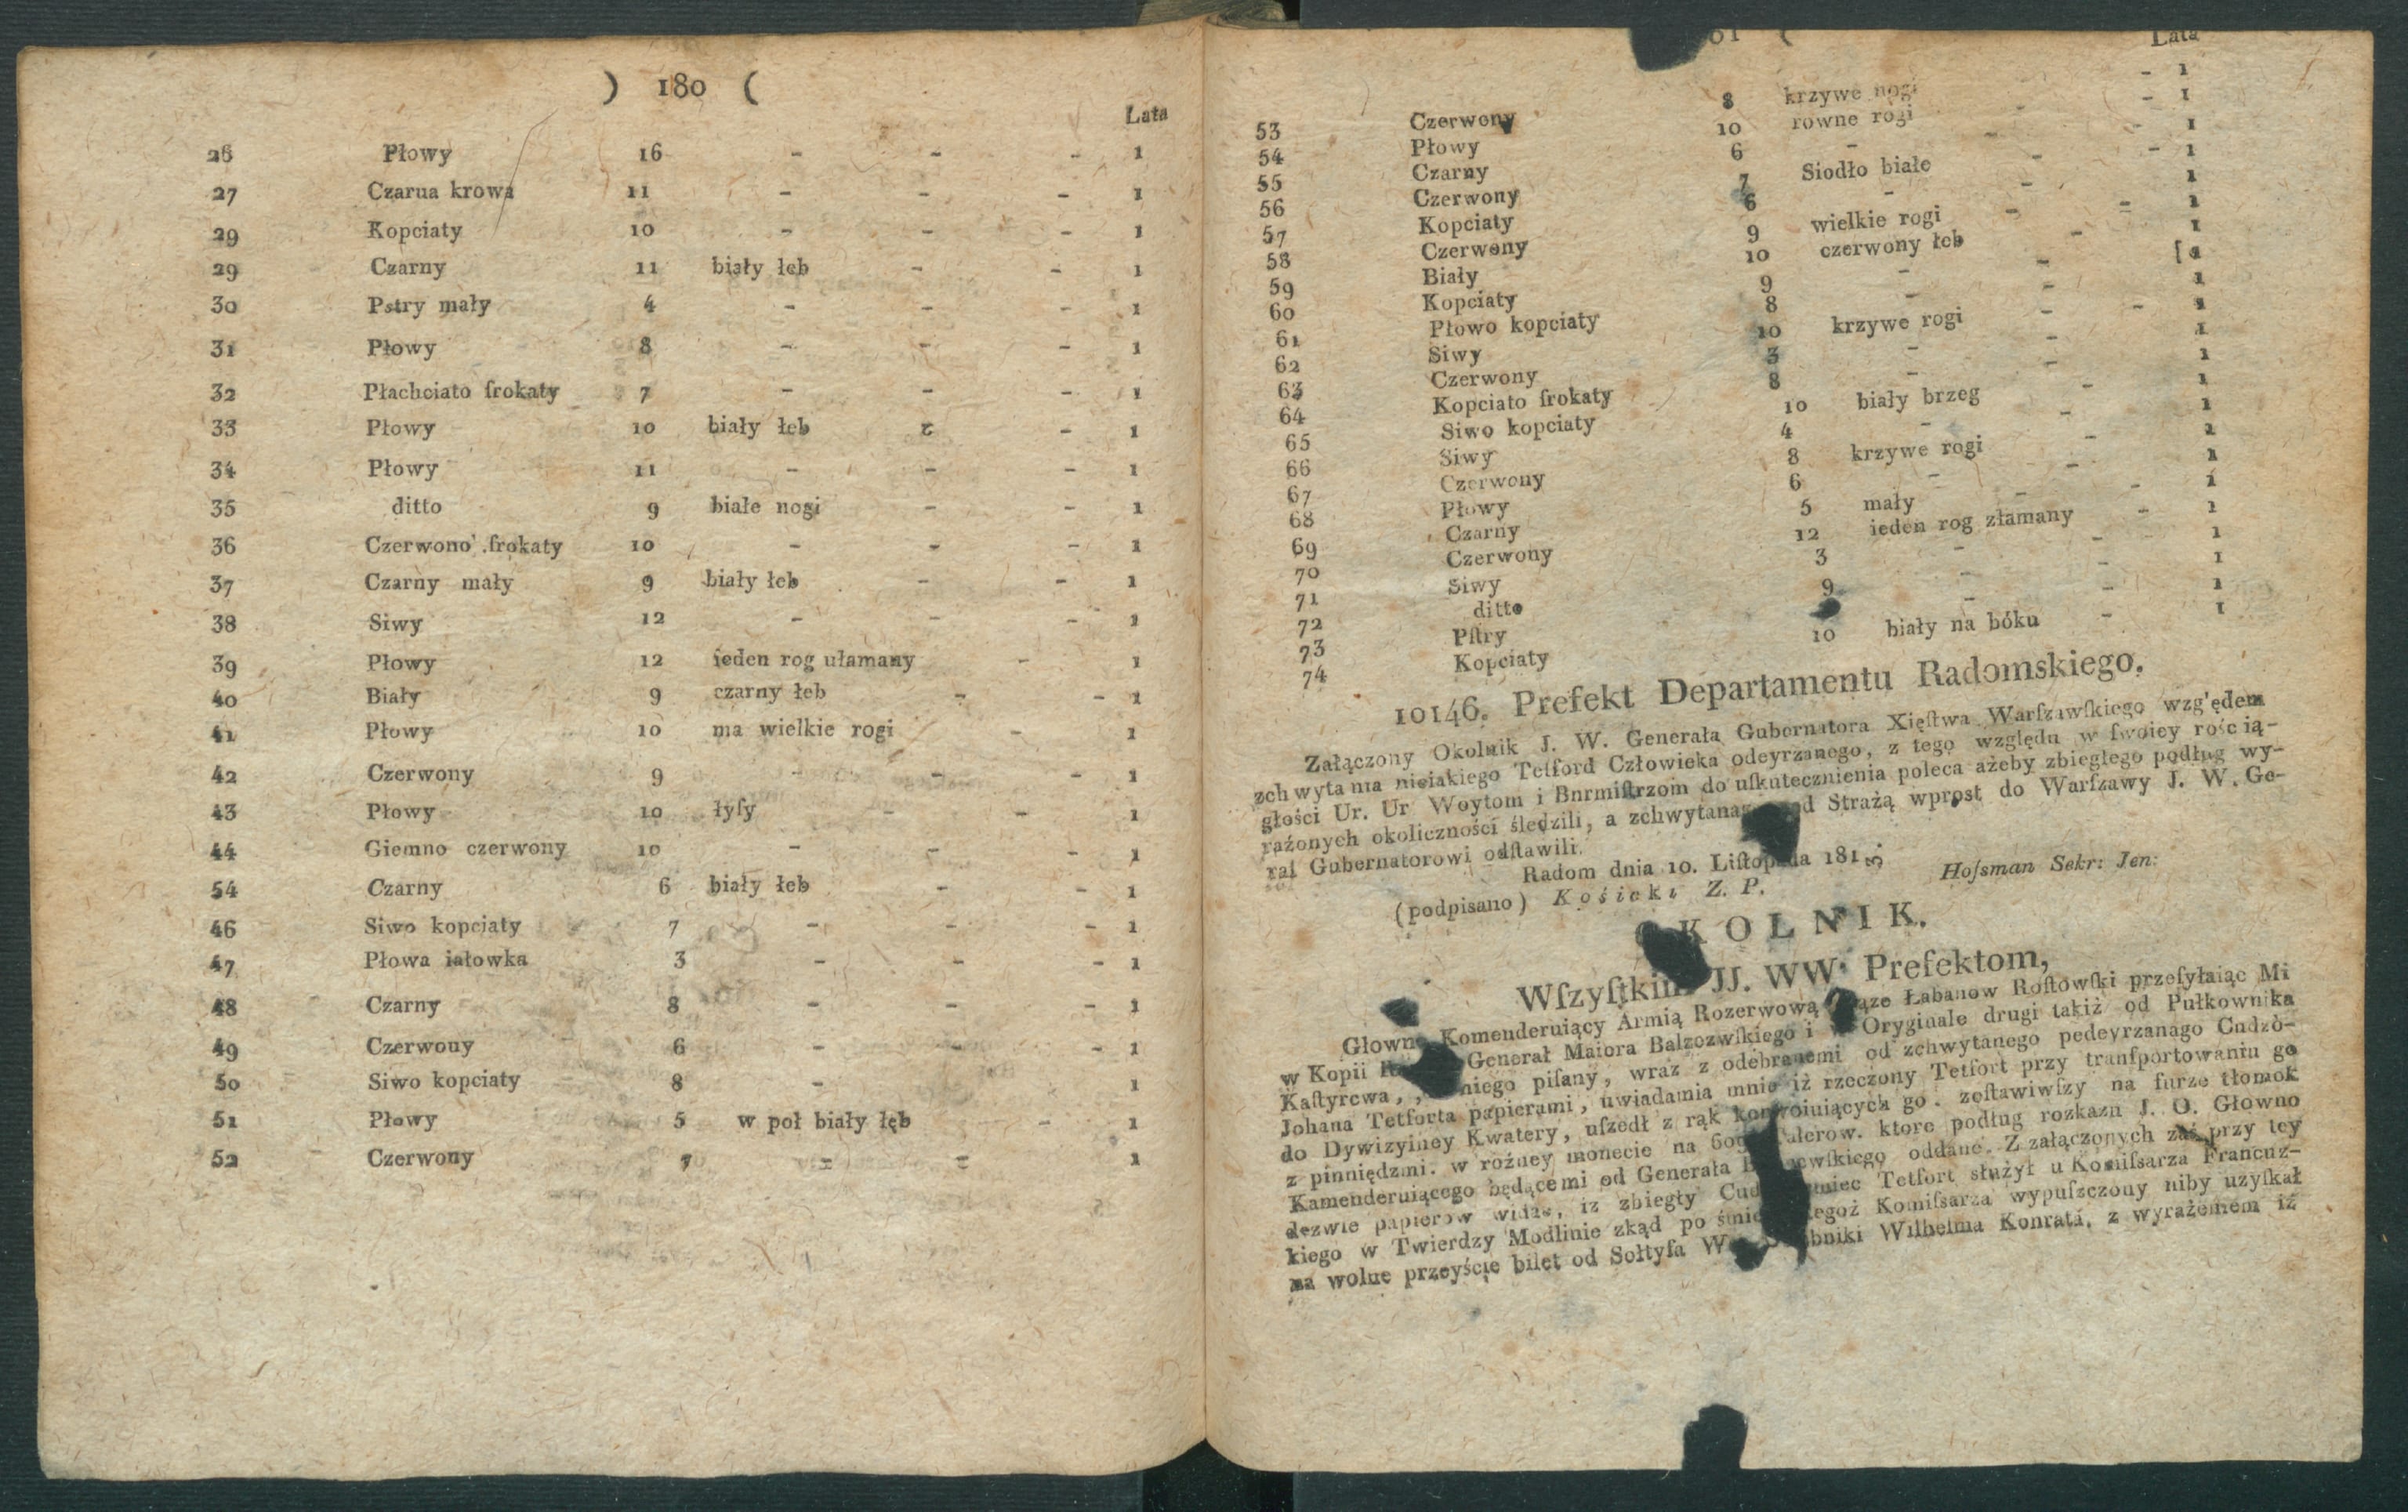 ) 180 (
Lata
26 Płowy 16 - - - 1
27 Czarua krowa 11 - - - 1
29 Kopciaty 10 - - - 1
29 Czarny 11 biały łeb - - 1
30 Pstry mały 4 - - - 1
31 Płowy 8 - - - 1
32 Płachciato ſrokaty 7 - - - 1
33 Płowy 10 biały łeb - 1
34 Płowy 11 - - - 1
35 ditto 9 białe nogi - - 1
36 Czerwono ſrokaty 10 - - - 1
37 Czarny mały 9 biały łeb - - 1
38 Siwy 12 - - - 1
39 Płowy 12 ieden rog ułamany - 1
40 Biały 9 czarny łeb - - 1
41 Płowy 10 ma wielkie rogi - 1
42 Czerwony 9 - - - 1
43 Płowy 10 łyſy - - 1
44 Giemno czerwony 10 - - - 1
54 Czarny 6 biały łeb - - 1
46 Siwo kopciaty 7 - - - 1
47 Płowa iałowka 3 - - - 1
48 Czarny 8 - - - 1
49 Czerwouy 6 - - - 1
50 Siwo kopciaty 8 - 1
51 Płowy 5 w poł biały łęb - 1
52 Czerwony 7 - - 1
Lata
53 Czerwony 8 krzywe nogi - 1
54 Płowy 10 rowne rogi - 1
55 Czarny 6 - - - 1
56 Czerwony 7 Siodło białe - - 1
57 Kopciaty 6 - - 1
58 Czerwony 9 wielkie rogi - - 1
59 Biały 10 czerwony łeb - 1
60 Kopciaty 9 - - 1
61 Płowo kopciaty 8 - - 1
62 Siwy 10 krzywe rogi - - 1
63 Czerwony 3 - - 1
64 Kopciato ſrokaty 8 - - 1
65 Siwo kopciaty 10 biały brzeg - 1
66 Siwy 4 - - 1
67 Czerwony 8 krzywe rogi - 1
68 Płowy 6 - - 1
69 Czarny 5 mały - - 1
70 Czerwony 12 ieden rog złamany - 1
71 Siwy 3 - - 1
72 ditto 9 - - 1
73 Pſtry - - 1
74 Kopciaty 10 biały na bóku - 1
10146. Prefekt Departamentu Radomskiego.
Załączony Okolnik J. W. Generała Gubernatora Xięſtwa Warſzawſkiego wzg'ędem
zchwytania nieiakiego Tetford Człowieka odeyrzanego, z tego względu w ſwoiey rością-
głości Ur. Ur Woytom i Bnrmiſtrzom do uſkutecznienia poleca ażeby zbiegłego podług wy-
rażonych okoliczności śledzili, a zchwytana Strażą wprost do Warſzawy J. W. Ge-
ral Gubernatorowi odſtawili.
Radom dnia 10. Liſtopada 1813.
(podpisano) Kośicki Z. P. Hoſsman Sekr: Jen:
KOLNIK.
Wſzyſtkim JJ. WW. Prefektom,
Głowno Komenderuiący Armią Rozerwową Łabanow Roſtowſki przeſyłaiąc Mi
w Kopii Generał Maiora Balzozwſkiego i w Oryginale drugi takiż od Pułkownika
Kaſtyrcwa, niego piſany, wraz z odebranemi od zchwytanego pedeyrzanago Cudzo-
Johana Tetforta papierami, uwiadamia mnie iż rzeczony Tetfort przy tranſportowaniu go
do Dywizyiney Kwatery, uſzedł z rąk konwoiuiących go. zoſtawiwſzy na furze tłomok
z pinniędzmi. w rożney monecie na Talerow. ktore podług rozkazu J. O. Głowno
Kamenderuiącego będącemi od Generała oddane. Z załączonych zaś przy tey
dezwie papierow widać, iz zbiegły Tetfort służył u Komiſsarza Francuz-
kiego w Twierdzy Modlinie zkąd po śmie tegoż Komiſsarza wypuſzczony niby uzyſkał
na wolne przeyście bilet od Sołtyſa Wilhelma Konrata, z wyrażeniem iż